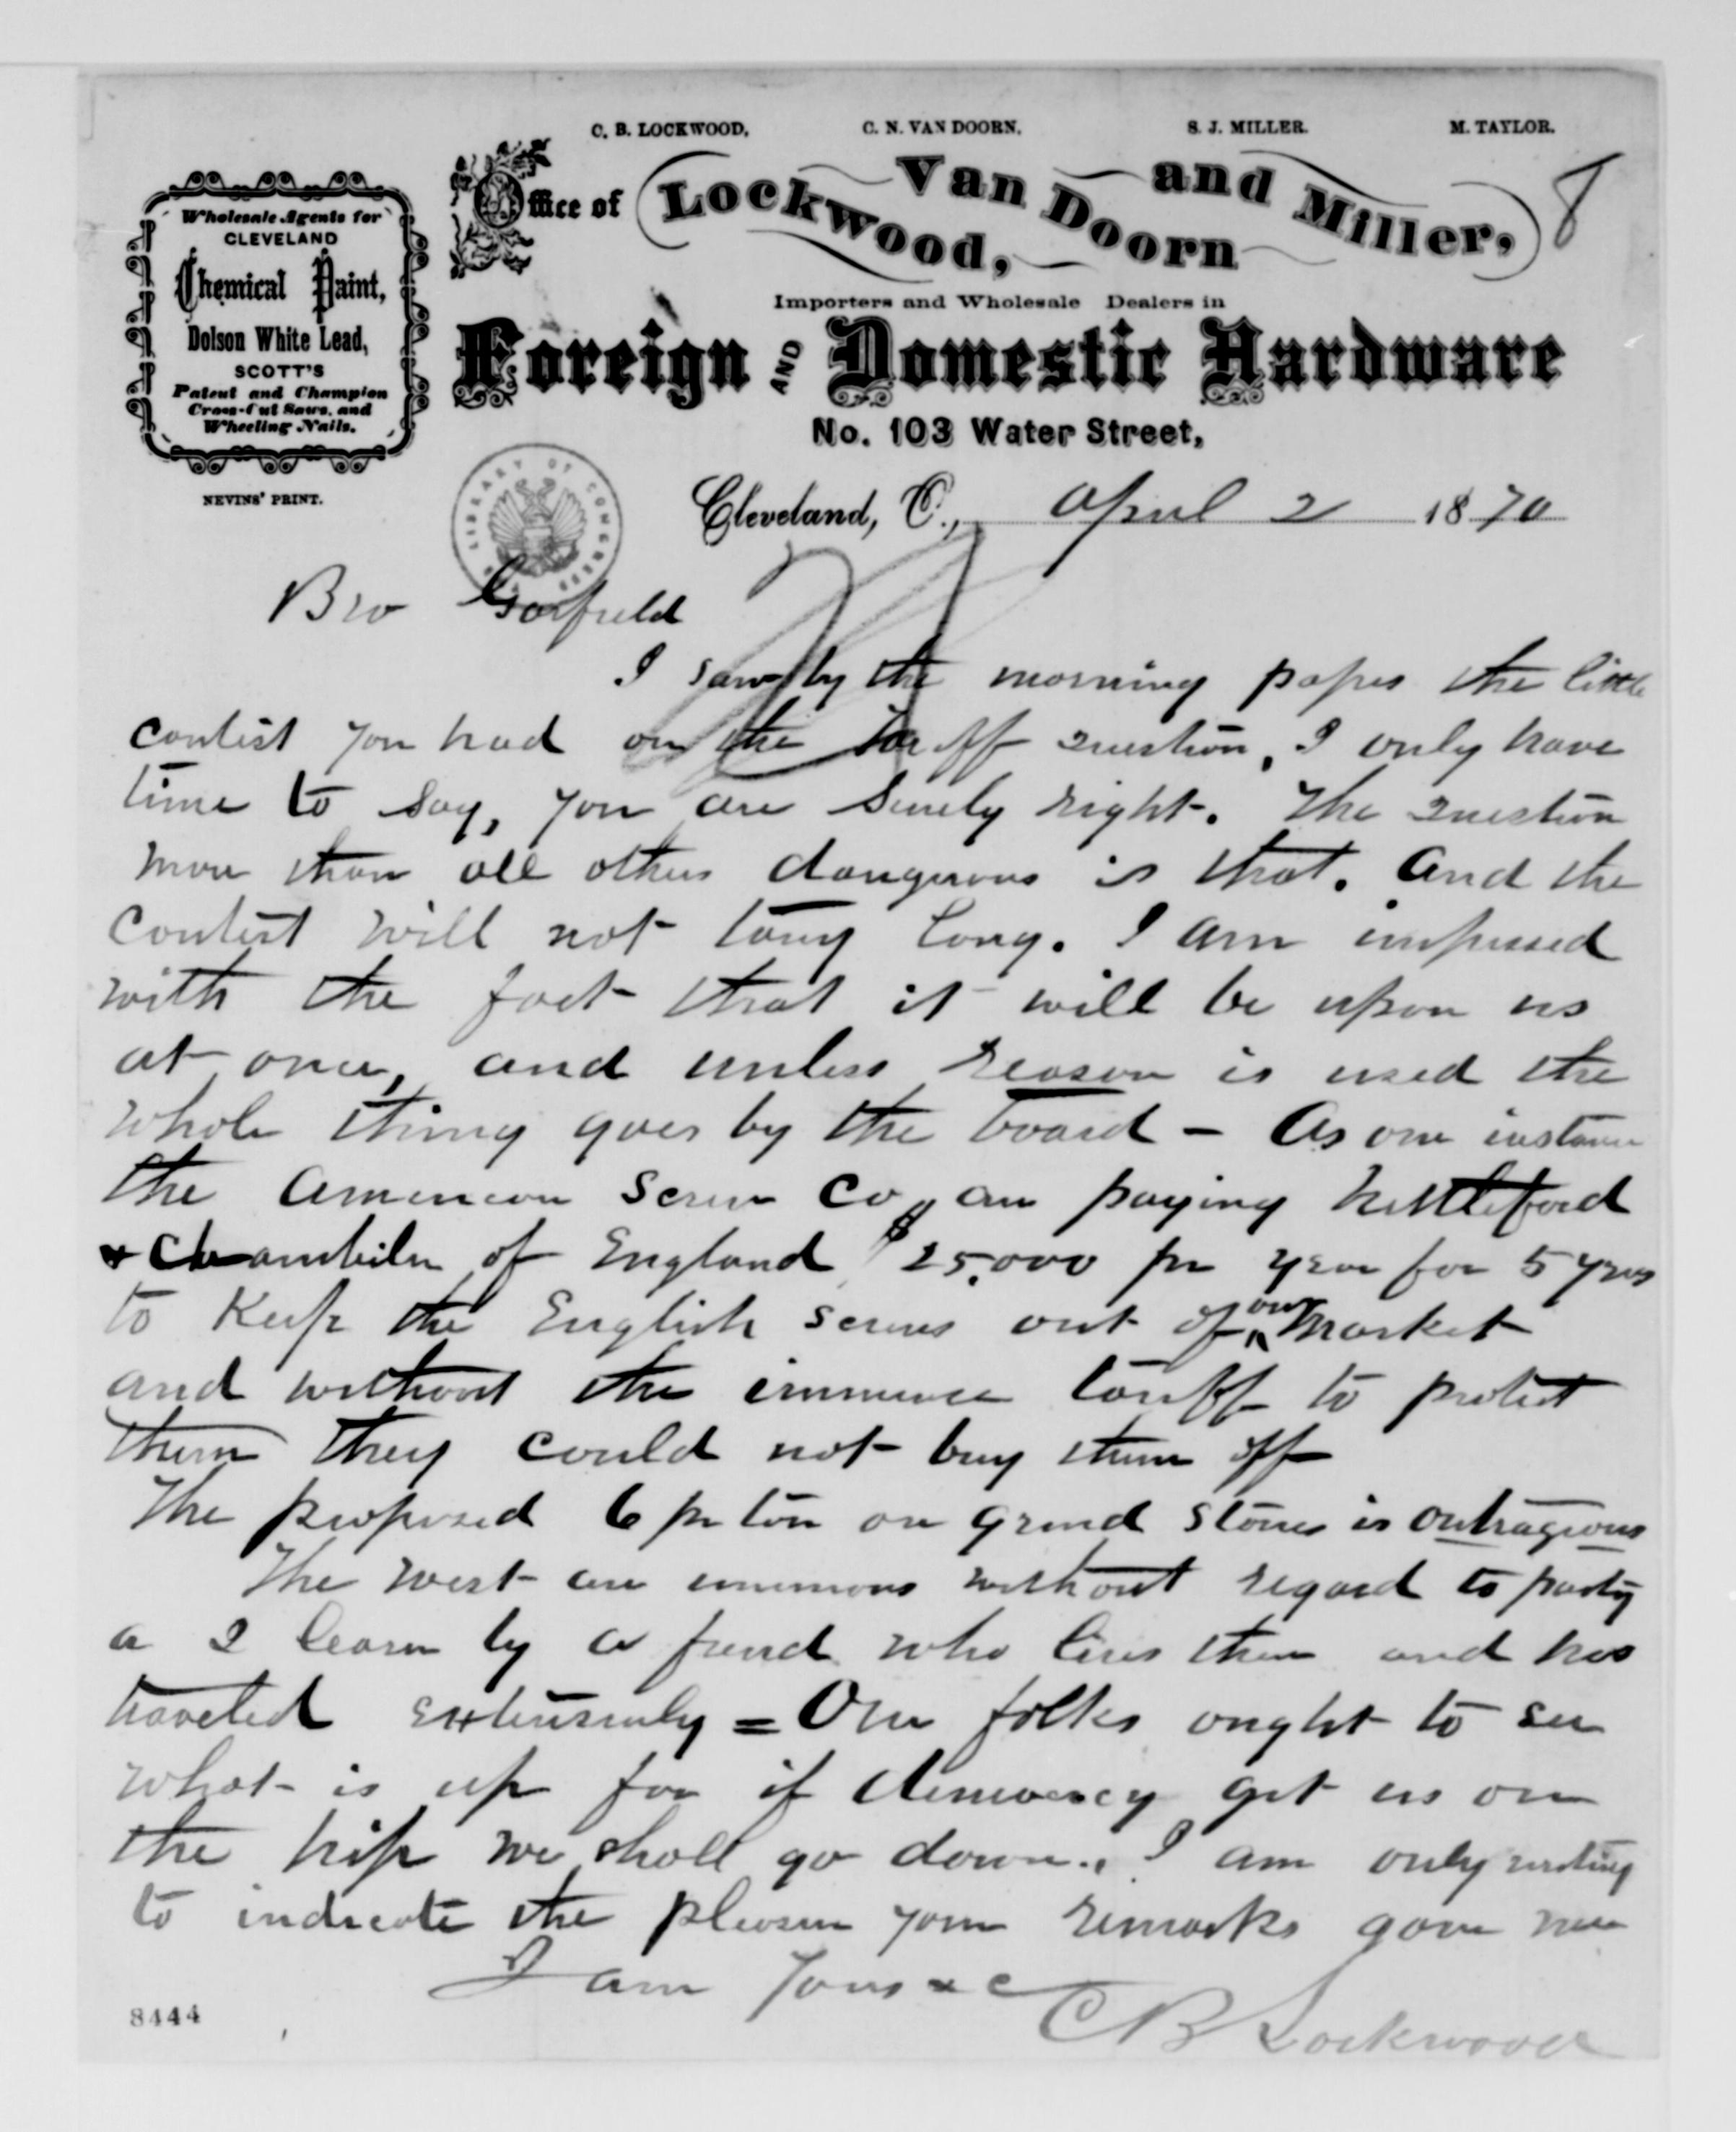 C. B. LOCKWOOD. C. N. VAN DOORN. S. J. MILLER. M. TAYLOR.
8
Office of Lockwood, Van Doorn and Miller,
Importers and Wholesale Dealers in
Foreign AND Domestic Hardware
No. 103 Water Street,
Wholesale Agents for
CLEVELAND
Chemical Paint,
Dolson White Lead,
SCOTT'S
Patent and Champion
Cross-Cut Saws, and
Wheeling Nails.
NEVINS' PRINT.
LIBRARY OF CONGRESS
Cleveland, O., April 2 1870
Bro Garfield
I saw by the morning paper the little
contest you had on the Tariff question, I only have
time to say, you are surely right. The question
more than all others dangerous is that. And the
contest will not tarry long. I am impressed
with the fact that it will be upon us
at once, and unless reason is used the
whole thing goes by the board - As one instance
the American Screw Co, are paying Nettleford
& Chamberlin of England $25,000 per year for 5 years
to Keep the English screws out of our market
and without the immense tariff to protect
them they could not buy them off
The proposed 6 pr ton on grind stones is outragious
The west are unanimous without regard to party
as I learn by a friend who lives there and has
traveled extensively = Our folks ought to see
what is up for if democracy get us on
the hip we shall go down. I am only writing
to indicate the pleasure your remarks gave me
I am Yours &c
C B Lockwood
8444